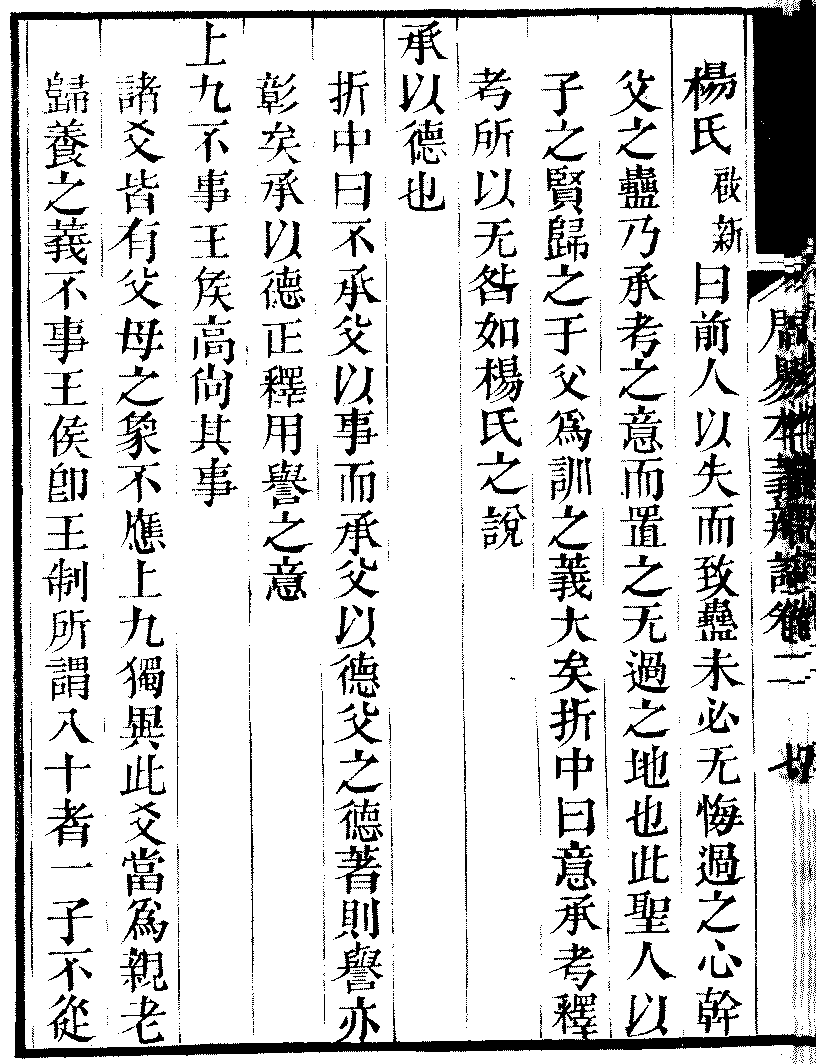 周易本義辨證卷二
楊氏啟新曰前人以失而致蠱未必无悔過之心幹
父之蠱乃承考之意而置之无過之地也此聖人以
子之賢歸之于父爲訓之義大矣折中曰意承考釋
考所以无咎如楊氏之說
承以德也
折中曰不承父以事而承父以德父之德著則譽亦
彰矣承以德正釋用譽之意
上九不事王侯高尙其事
諸爻皆有父母之象不應上九獨異此爻當爲親老
歸養之義不事王侯卽王制所謂八十者一子不從